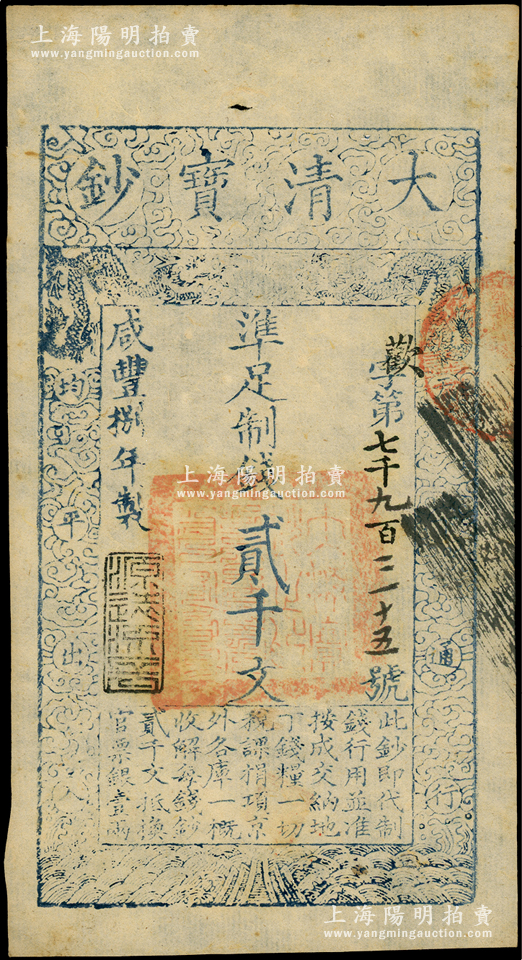 上海陽明拍賣
www.yangmingauction.com
大清寶鈔
歡字第七千九百三十五號
準足制錢貳千文
咸豐捌年製
均平出入
通行
源遠流長
此鈔即代制
錢行用並准
按成交納地
丁錢糧一切
稅課捐項京
外各庫一概
收解每錢鈔
貳千文抵換
官票銀壹兩
上海陽明拍賣
www.yangmingauction.com
上海陽明拍賣
www.yangmingauction.com